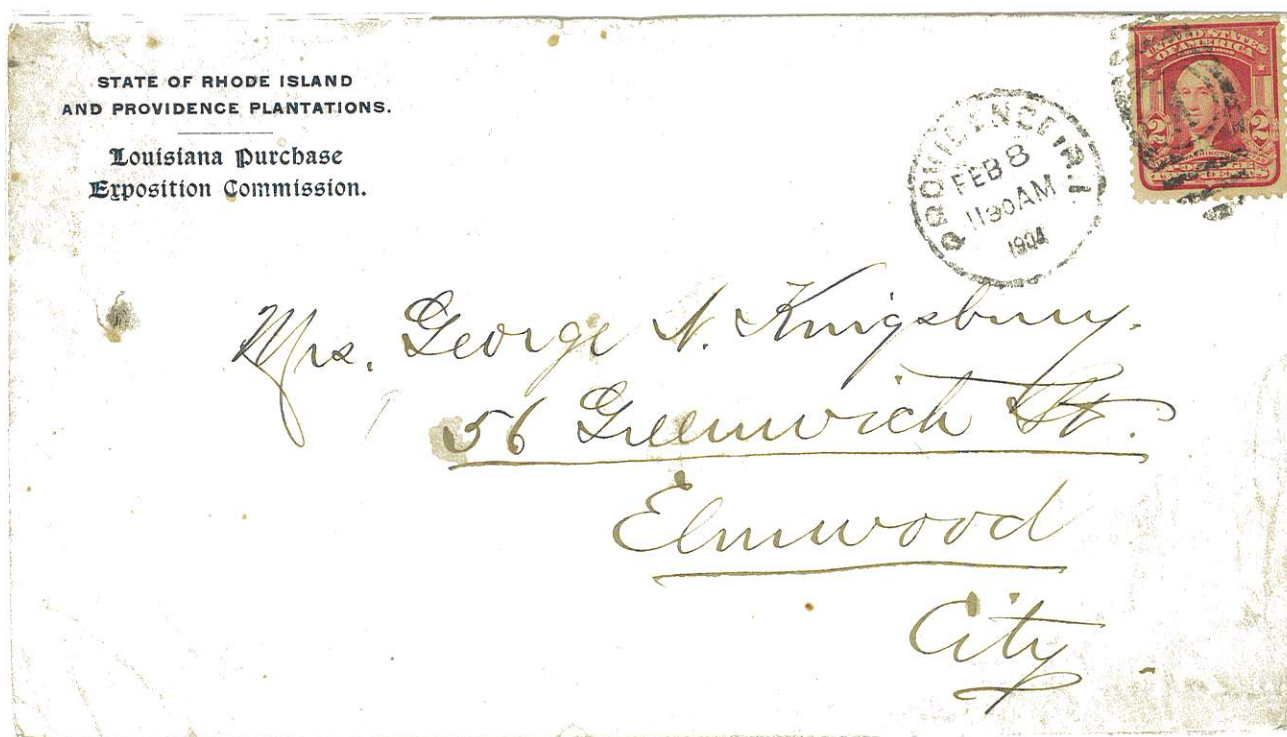 STATE OF RHODE ISLAND
AND PROVIDENCE PLANTATIONS.
Louisiana Purchase
Exposition Commission.
PROVIDENCE, R.I.
FEB 8
1130AM
1904
UNITED STATES
OF AMERICA
2 2
Mrs. George N. Kingsbury.
56 Greenwich St.
Elmwood
City